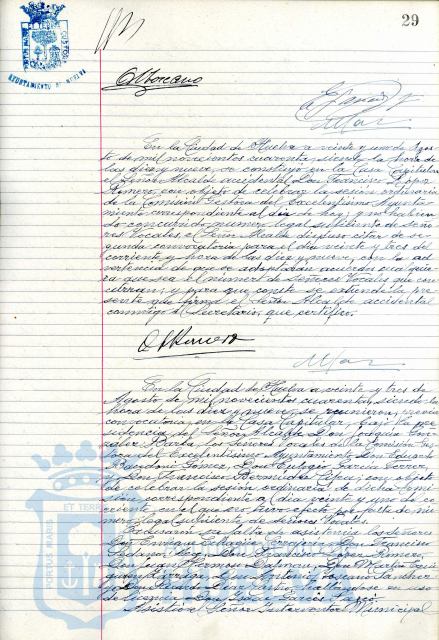 29
AYUNTAMIENTO DE HUELVA
En la Ciudad de Huelva a veinte y uno de Agos-
to de mil novecientos cuarenta, siendo la hora de
las diez y nueve, se constituyó en la Casa Capitular
el Señor Alcalde accidental Don Francisco López
Romero, con objeto de celebrar la sesión ordinaria
de la Comisión Gestora del Excelentísimo Ayunta-
miento correspondiente al día de hoy; y no habien-
do concurrido número legal suficiente de seño-
res Vocales, el Señor Alcalde dispuso citar de se-
gunda convocatoria para el día veinte y tres del
corriente y hora de las diez y nueve, con la ad-
vertencia de que se adoptarán acuerdos cualquie-
ra que sea el número de Señores Vocales que con-
curran; y para que conste se extiende la pre-
sente que firma el Señor Alcalde accidental
conmigo el Secretario, que certifico.
En la Ciudad de Huelva a veinte y tres de
Agosto de mil novecientos cuarenta, siendo la
hora de las diez y nueve, se reunieron, previa
convocatoria, en la Casa Capitular, bajo la pre-
sidencia del Señor Alcalde Don Joaquín Gon-
zález Barba, los señores Vocales de la Comisión Ges-
tora del Excelentísimo Ayuntamiento Don Eduardo
Gómez, Don Eulogio García
y Don Francisco Bermúdez con objeto
de celebrar la sesión ordinaria de dicha Comi-
sión correspondiente al día veinte y uno del co-
rriente, en el que no tuvo efecto por falta de nú-
mero legal suficiente de señores Vocales.
su falta de asistencia los señores
Don Don Francisco
Don Francisco López Romero,
Don Juan Don Martín
Don Antonio Toscano Sánchez
y Don Ricardo hallándose en uso
de licencia Don García
Asistió el Señor Interventor Municipal